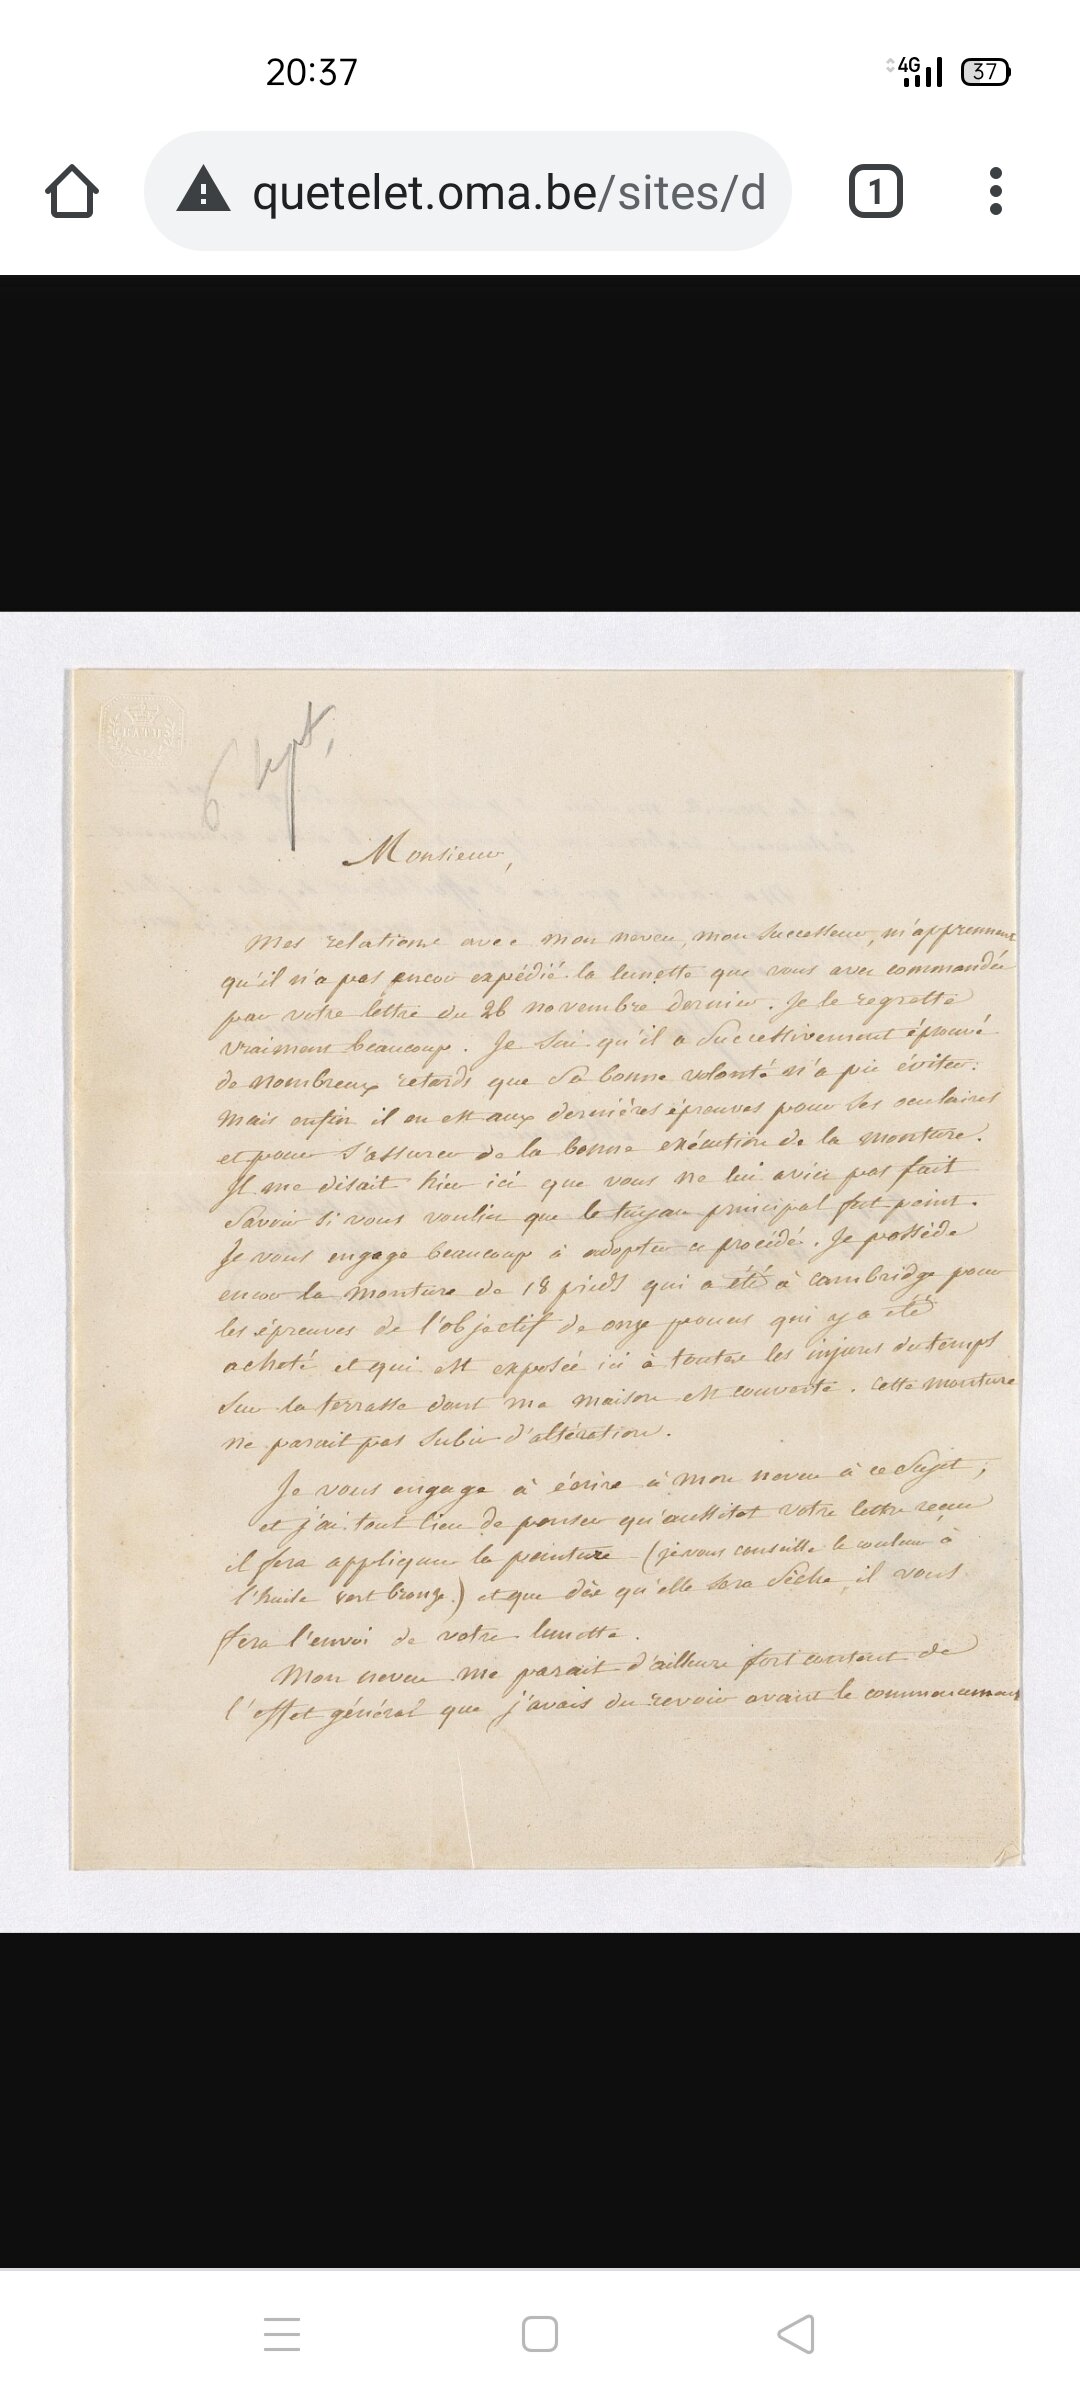 20:37
4G
37
quetelet.oma.be/sites/d
1
6 Sept,
Monsieur,
Mes relations avec mon neveu, mon successeur, m'apprennent
qu'il n'a pas encor expédié la lunette que vous avez commandée
par votre lettre du 26 novembre dernier. Je le regrette
vraiment beaucoup. Je sai qu'il a successivement éprouvé
de nombreux retards que sa bonne volonté n'a pu éviter:
mais enfin il en est aux dernières épreuves pour ses oculaires
et pour s'assurer de la bonne exécution de la monture.
Il me disait hier ici que vous ne lui aviez pas fait
savoir si vous vouliez que le tuyau principal fut peint.
Je vous engage beaucoup à adopter ce procédé. Je possède
encor la monture de 18 pieds qui a été à Cambridge pour
les épreuves de l'objectif de onze pouces qui y a été
acheté et qui est exposée ici à toutes les injures du temps
sur la terrasse dont ma maison est couverte. Cette monture
ne parait pas subir d'altération.
Je vous engage à écrire à mon neveu à ce sujet;
et j'ai tout lieu de penser qu'aussitot votre lettre reçue
il fera appliquer la peinture (je vous conseille la couleur à
l'huile vert bronze.) et que dès qu'elle sera sèche, il vous
fera l'envoi de votre lunette.
Mon neveu me parait d'ailleurs fort content de
l'effet général que j'avais du revoir avant le commencement